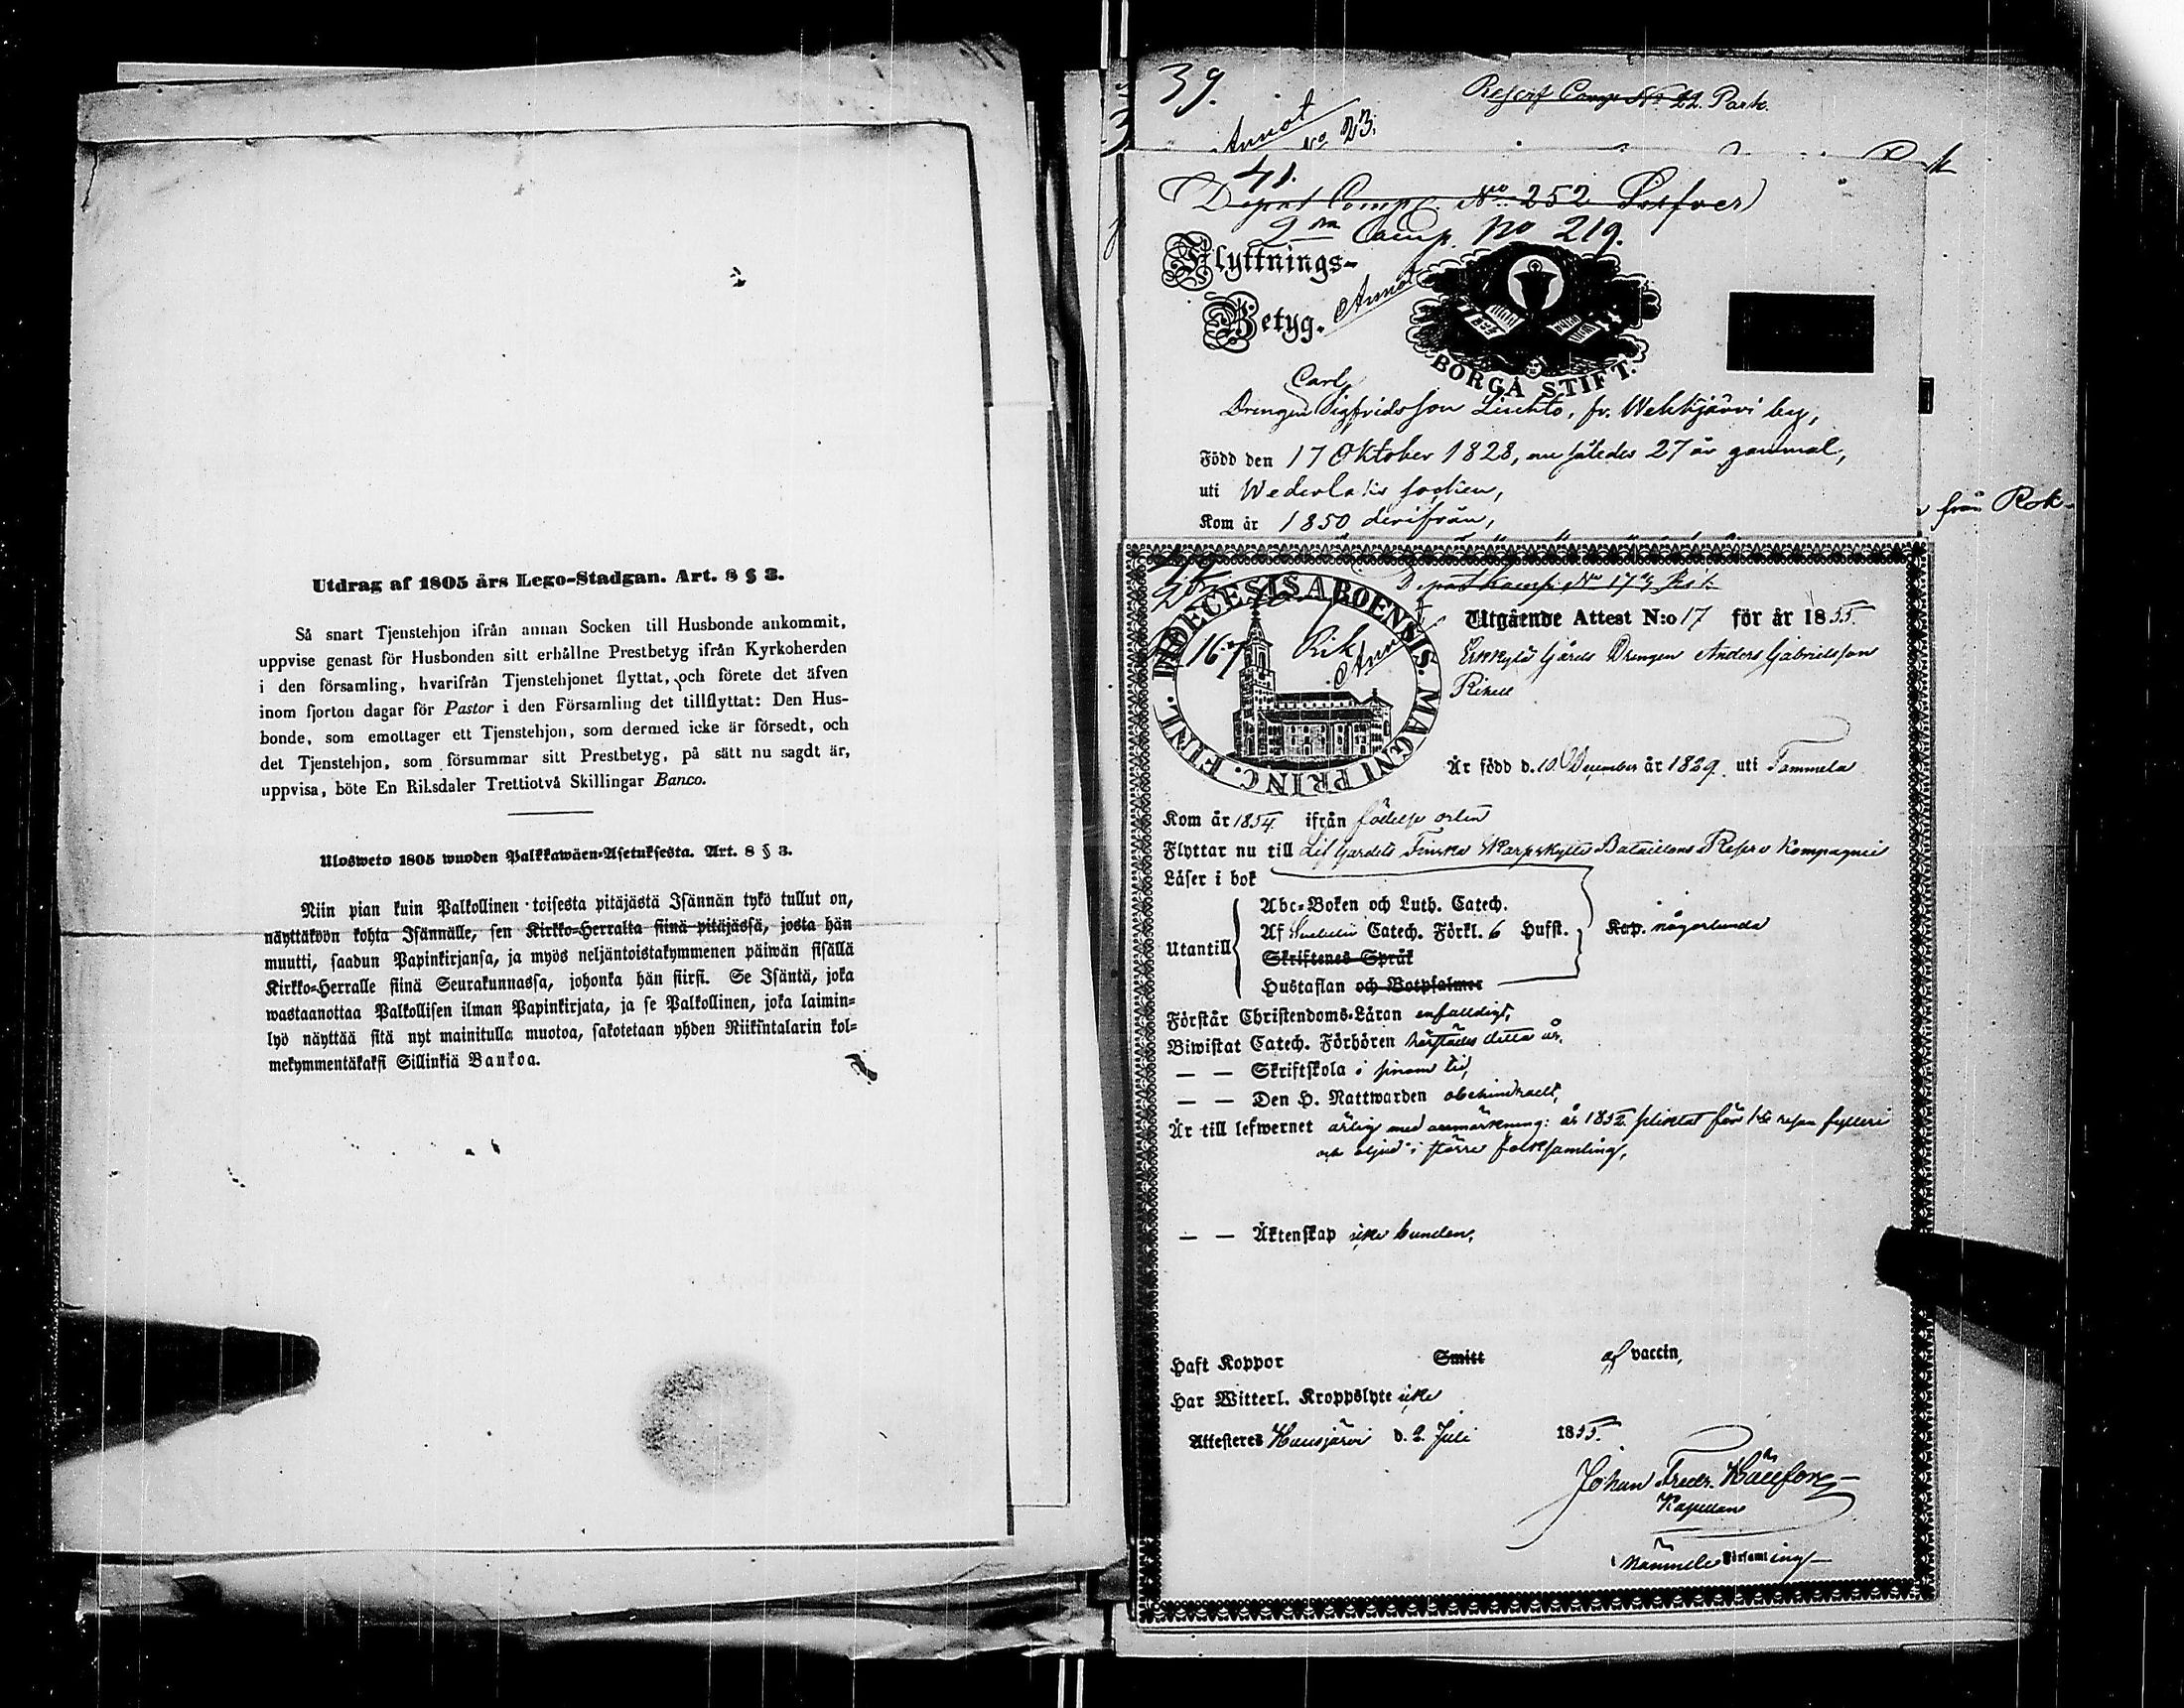 Utdrag af 1805 års Lego-Stadgan. Art. 8 § 3.
Så snart Tjenstehjon ifrån annan Socken till Husbonde ankommit,
uppvise genast för Husbonden sitt erhållne Prestbetyg ifrån Kyrkoherden
i den församling, hvarifrån Tjenstehjonet flyttat, och förete det äfven
inom fjorton dagar för Pastor i den Församling det tillflyttat: Den Hus-
bonde, som emottager ett Tjenstehjon, som dermed icke är försedt, och
det Tjenstehjon, som försummar sitt Prestbetyg, på sätt nu sagdt är,
uppvisa, böte En Riksdaler Trettiotvå Skillingar Banco.
Ulosweto 1805 wuoden Palkkawäen-Asetuksesta. Art. 8 § 3.
Niin pian kuin Palkollinen toisesta pitäjästä Isännän tykö tullut on,
näyttäköön kohta Isännälle, sen Kirkko-Herralta siinä pitäjässä, josta hän
muutti, saadun Papinkirjansa, ja myös neljäntoistakymmenen päiwän sisällä
Kirkko-Herralle siinä Seurakunnassa, johonka hän siirsi. Se Isäntä, joka
wastaanottaa Palkollisen ilman Papinkirjata, ja se Palkollinen, joka laimin-
lyö näyttää sitä nyt mainitulla muotoa, sakotetaan yhden Riikintalarin kol-
mekymmentäkaksi Sillinkiä Bankoa.
39.
Reserf Comp No 22. Park.
Annot
No 23.
41.
Depot Comp. No 252
2 Comp. No 219.
Flyttnings-
Betyg.
Annot
BORGÅ STIFT.
Carl
Drengen Sigfridsson Liuhto, fr. Wehkjärvi by,
Född den 17 Oktober 1828, nu således 27 år gammal,
uti Wederlaks socken,
Kom år 1850 derifrån,
från Rok
Depot Komp. No 173
DIOECESIS ABOENSIS. MAGNI PRINC. FINL.
167 Rik
Annot
Utgående Attest N:o 17 för år 1855.
Erkkylä Gårds Drengen Anders Gabrielsson
Är född d. 10 December år 1829. uti Tammela
Kom år 1854. ifrån födelse orten
Flyttar nu till Lif Gardets Finska Skarpskytte Bataillons Reserv Kompagnie
Läser i bok
Utantill
Abc-Boken och Luth. Catech.
Af Svebelii Catech. Förkl. 6 Hufst.
Kap. någorlunda
Skriftenes Språk
Hustaflan och Botpsalmer
Förstår Christendoms-Läran enfalldigt,
Biwistat Catech. Förhören härstädes detta år,
— — Skriftskola i sinom tid,
— — Den H. Nattwarden obehindradt,
Är till lefwernet ärlig med anmärkning: år 1852 pliktat för 1sta resan fylleri
och oljud i större folksamling,
— — Äktenskap icke bunden,
Haft Koppor Smitt af vaccin,
Har Witterl. Kroppslyte icke
Attesteres Hausjärvi d. 2. Juli 1855.
Johan Fredr.
Kapellan
Församling